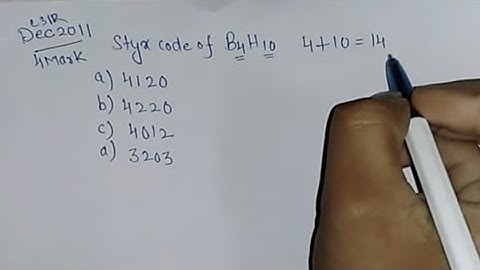 CSIR
Dec2011
4Mark
Styx code of B4H10 4+10=14
a) 4120
b) 4220
c) 4012
d) 3203